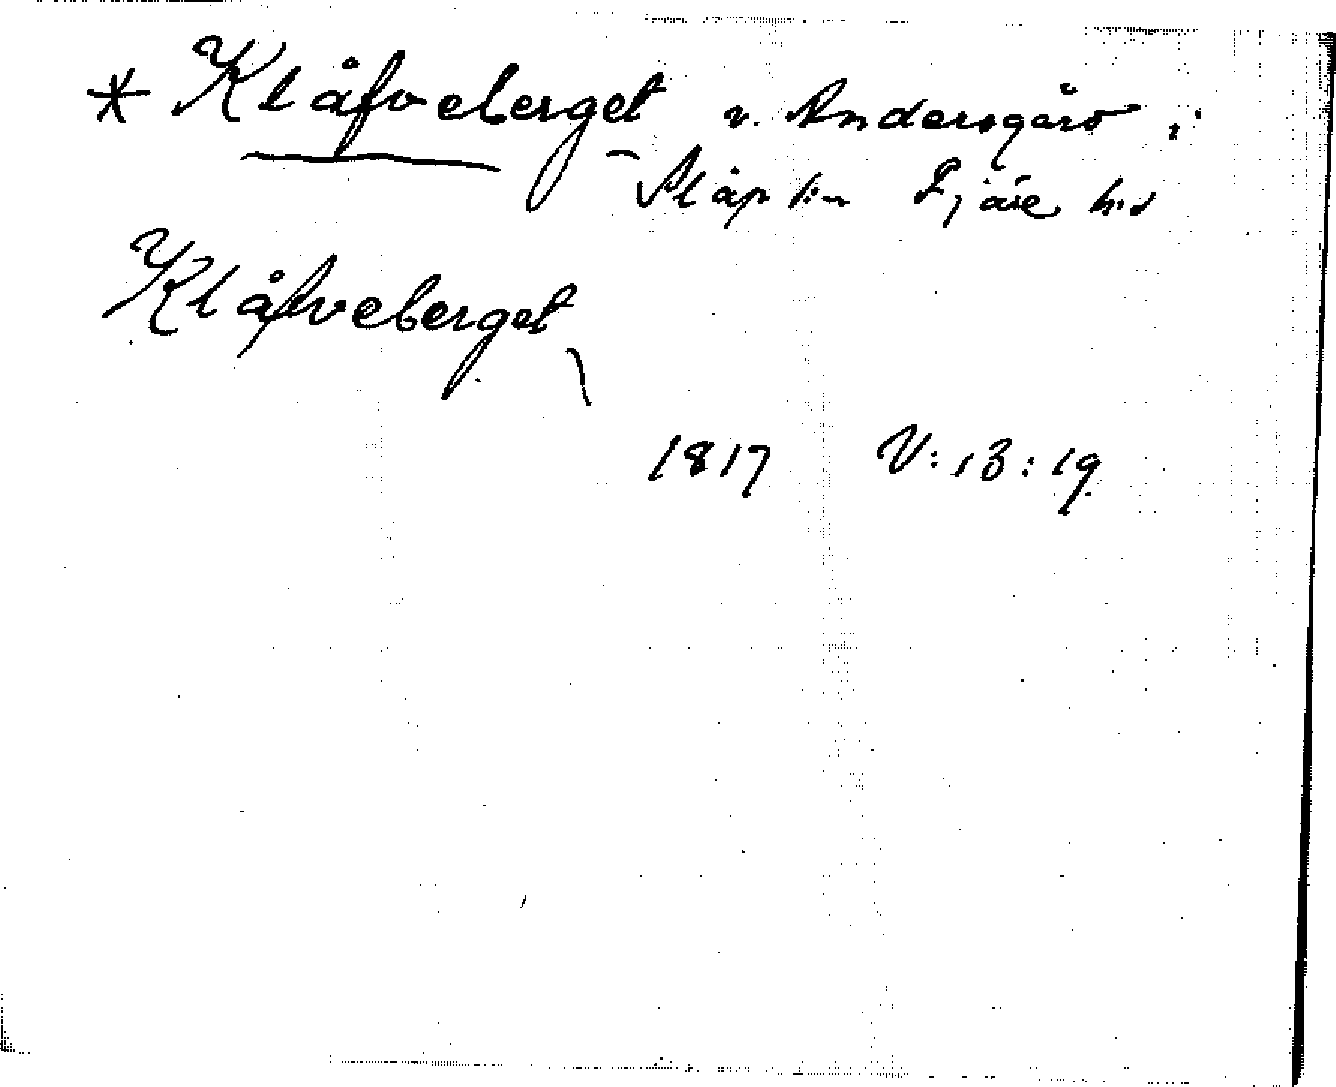 * Klåfveberget v. Andersgård i
Släp sn Fjäre hd
Klåfveberget
1817 V:13:19